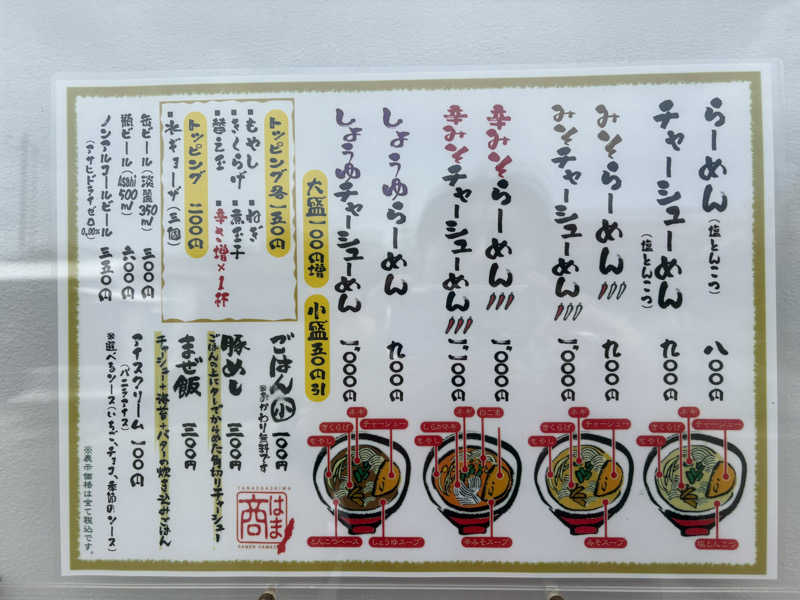 らーめん（塩とんこつ） 八〇〇円
チャーシューめん（塩とんこつ） 九〇〇円
みそらーめん 九〇〇円
みそチャーシューめん 一、〇〇〇円
辛みそらーめん 一、〇〇〇円
辛みそチャーシューめん 一、一〇〇円
しょうゆらーめん 九〇〇円
しょうゆチャーシューめん 一、〇〇〇円
大盛一〇〇円増 小盛五〇円引
トッピング各一五〇円
■もやし ■ねぎ
■きくらげ ■煮玉子
■替え玉 ■辛さ増×1杯
トッピング 二〇〇円
■水ギョーザ（三個）
缶ビール（淡麗350ml） 三〇〇円
瓶ビール（Asahi 500ml） 六〇〇円
ノンアルコールビール 三五〇円
（アサヒドライゼロ0.00%）
ごはん 小 一〇〇円
※おかわり無料です
豚めし 三〇〇円
ごはんの上にタレでからめた角切りチャーシュー
まぜ飯 三〇〇円
チャーシュー+海苔+バターの炊き込みごはん
アイスクリーム 一〇〇円
（バニラアイス）
※選べるソース（いちご、チョコ、季節のソース）
※表示価格は全て税込です。
ネギ
チャーシュー
きくらげ
もやし
塩とんこつ
ネギ
チャーシュー
きくらげ
もやし
みそスープ
ネギ
白ごま
しらがネギ
チャーシュー
もやし
辛みそスープ
ネギ
チャーシュー
きくらげ
もやし
とんこつベース
しょうゆスープ
TANEGASHIMA
はま商
RAMEN HAMASHO